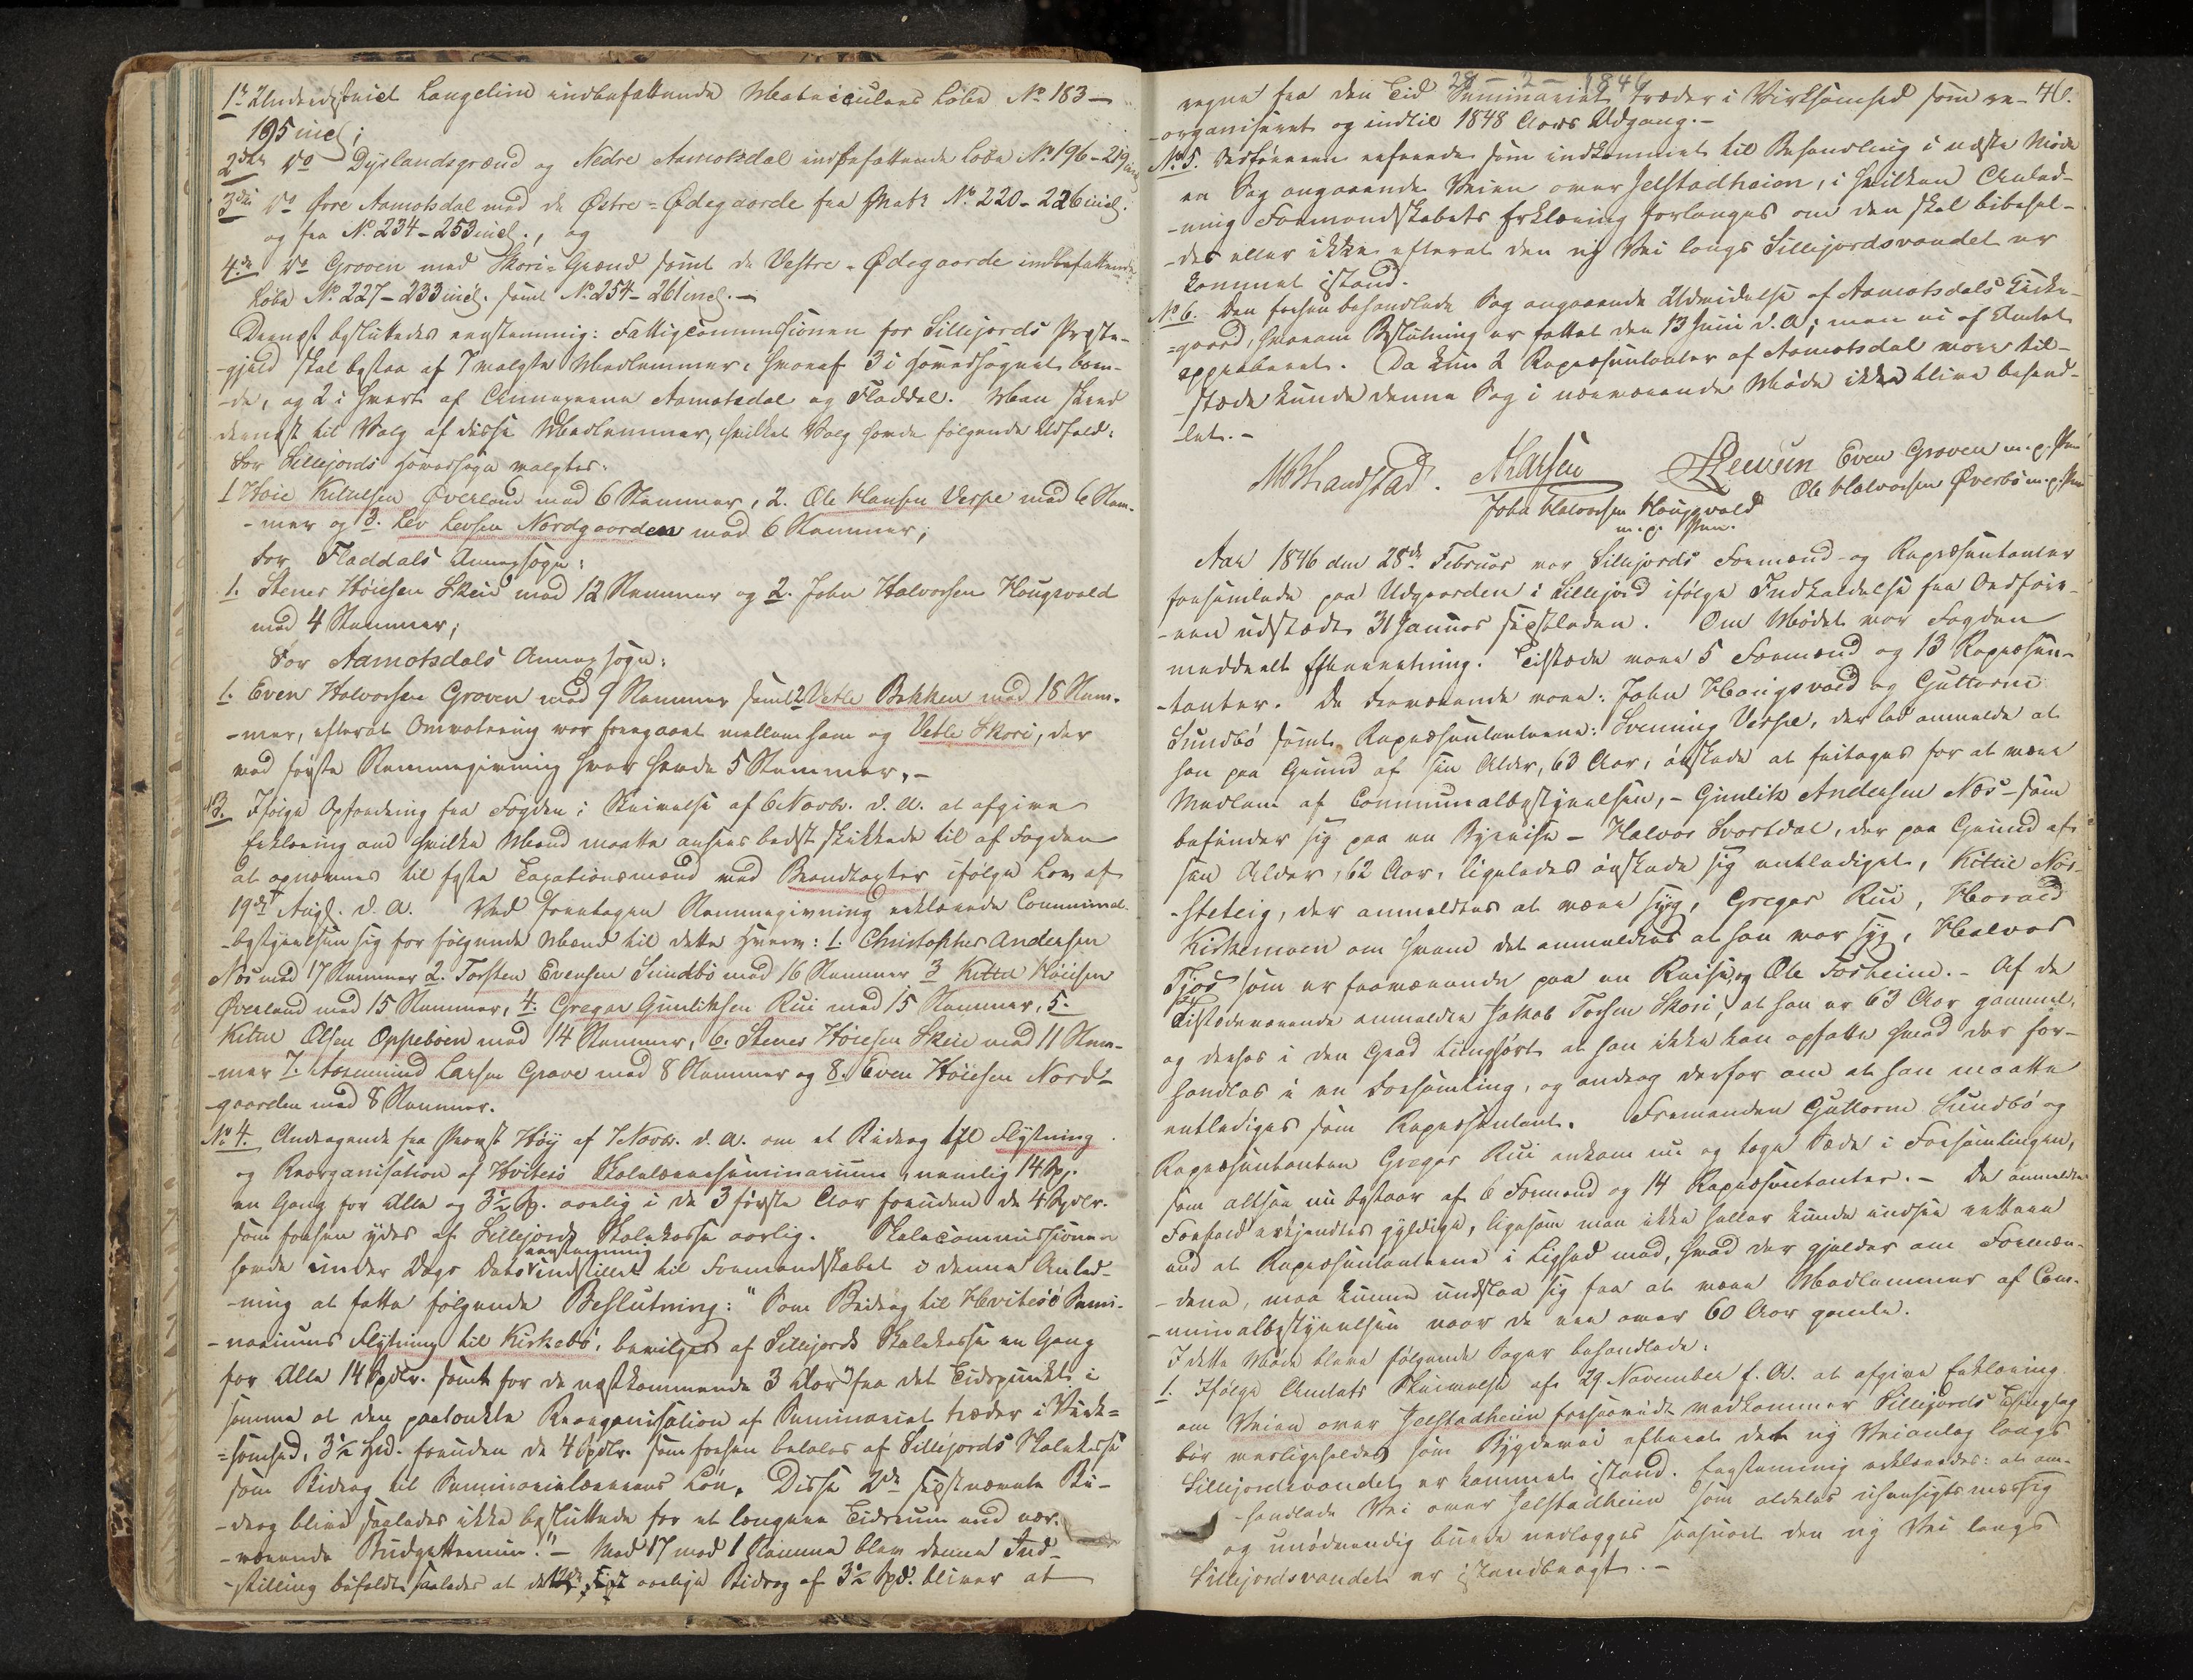 1ste Underdistrict Langelim indbefattende Matriculens Løbe No 183 –
195 incl;
2det Do Dyrlandsgrænd og Nedre Aamotsdal indbefattende Løbe No 196–219 incl
3die Do Øvre Aamotsdal med de Østre-Ødegaarde fra Matr No 220–226 incl.
og fra No 234–253 incl., og
4de Do Grooven med Skori-Grænd samt de Vestre-Ødegaarde indbefattende
Løbe No 227–233 incl. samt No 254–261 incl. –
Dernæst besluttedes eenstemmig: Fattigcommissionen for Sillejords Præste-
-gjeld skal bestaa af 7 valgte Medlemmer, hvoraf 3 i Hovedsognet boen-
-de, og 2 i hvert af Annexerne Aamotsdal og Fladdal. Man skred
dernæst til Valg af disse Medlemmer, hvilket Valg havde følgende Udfald:
For Sillejords Hovedsogn valgtes:
1 Høie Kitilsen Øverland med 6 Stemmer, 2. Ole Hansen Verpe med 6 Stem-
-mer og 3. Lev Levsen Nordgaarden med 6 Stemmer;
For Fladdals Annexsogn:
1. Stener Høiesen Skeie med 12 Stemmer og 2. John Halvorsen Hougsvald
med 4 Stemmer;
For Aamotsdals Annexsogn:
1. Even Halvorsen Groven med 9 Stemmer samt 2 Vetle Bekken med 18 Stem-
-mer, efterat Omvotering var foregaaet mellem ham og Vetle Skori, der
ved første Stemmegivning hver havde 5 Stemmer. –
No 3. Ifølge Opfordring fra Fogden i Skrivelse af 6 Novbr. d. A. at afgive
Erklæring om hvilke Mænd maatte ansees bedst skikkede til af Fogden
at opnævnes til faste Taxationsmænd ved Brandtaxter ifølge Lov af
19de Augs. d. A. Ved foretagen Stemmegivning erklærede Communal-
-bestyrelsen sig for følgende Mænd til dette Hverv: 1. Christopher Andersen
Næs med 17 Stemmer 2. Torsten Evensen Sundbø med 16 Stemmer 3 Kittel Høiesen
Øverland med 15 Stemmer, 4. Gregar Gunliksen Rui med 15 Stemmer, 5.
Kittel Olsen Oppebøen med 14 Stemmer, 6. Stener Høiesen Skeie med 11 Stem-
-mer 7. Aasmund Larsen Grave med 8 Stemmer og 8. Even Høiesen Nord-
-gaarden med 8 Stemmer.
No 4. Andragende fra Provst Høy af 7 Novbr. d. A. om et Bidrag til Flytning
og Reorganisation af Hvitesø Skolelærerseminarium, nemlig 14 Sp.
en Gang for Alle og 3½ Sp. aarlig i de 3 første Aar foruden de 4 Spdlr.
som forhen ydes af Sillejords Skolekasse aarlig. Skolecommissionen
havde under Dags Dato eenstemmig indstillet til Formandskabet i denne Anled-
-ning at fatte følgende Beslutning: "Som Bidrag til Hvitesøe Semi-
-nariums Flytning til Kirkebø, bevilges af Sillejords Skolekasse en Gang
for Alle 14 Spdlr. samt for de næstkommende 3 Aar fra det Tidspunkt i
samme at den paatænkte Reorganisation af Seminariet træder i Virk-
-somhed, 3½ Spd. foruden de 4 Spdlr. som forhen betales af Sillejords Skolekasse
som Bidrag til Seminarielærerens Løn. Disse 2de sidstnævnte Bi-
-drag blive saaledes ikke besluttede for et længere Tidsrum end nær-
-værende Budgettermin." – Med 17 mod 1 Stemme blev denne Ind-
-stilling bifaldt saaledes at det aarlige Bidrag af 3½ Spd. bliver at
28 – 2 – 1846
regne fra den Tid Seminariet træder i Virksomhed som re- 46.
-organiseret og indtil 1848 Aars Udgang. –
No 5. Ordføreren refererede som indkommet til Behandling i næste Møde
en Sag angaaende Veien over Jelstadheien, i hvilken Anled-
-ning Formandskabets Erklæring forlanges om den skal bibehol-
-des eller ikke efterat den ny Vei langs Sillejordsvandet er
kommet istand.
No 6. Den forhen behandlede Sag angaaende Udvidelse af Aamotsdals Kirke-
-gaard, hvorom Beslutning er fattet den 13 Juni d. A; men ei af Amtet
approberet. Da kun 2 Repræsentanter af Aamotsdal vare til-
-stede kunde denne Sag i nærværende Møde ikke blive behand-
-let. –
MBLandstad. Even Groven m.p. Pen
Ole Halvorsen Øverbø m.p. Pen
John Halvorsen Hougsvald
m.p. Pen.
Aar 1846 den 28de Februar var Sillejords Formænd- og Repræsentanter
forsamlede paa Udgaarden i Sillejord ifølge Indkaldelse fra Ordføre-
-ren udstædt 31 Januar sidstleden. Om Mødet var Fogden
meddeelt Efterretning. Tilstæde vare 5 Formænd og 13 Repræsen-
-tanter. De fraværende vare: John Hougsvald og Guttorm
Sundbø samt Repræsentanterne: Svenning Verpe, der lod anmelde at
han paa Grund af sin Alder, 63 Aar, ønskede at fritages for at være
Medlem af Communalbestyrelsen, – Gunlik Andersen Næs – som
befinder sig paa en Byreise – Halvor Svartdal, der paa Grund af
sin Alder, 62 Aar, ligeledes ønskede sig entlediget, Kittil Nor-
-steteig, der anmeldtes at være syg, Gregar Rui, Harald
Kirkemoen om hvem det anmeldtes at han var syg, Halvor
Tjos som er fraværende paa en Reise, og Ole Forheim. – Af de
Tilstedeværende anmeldte Jakob Torsen Skori, at han er 63 Aar gammel,
og derhos i den Grad tunghørt at han ikke kan opfatte hvad der for-
handles i en Forsamling, og androg derfor om at han maatte
entlediges som Repræsentant. Formanden Guttorm Sundbø og
Repræsentanten Gregar Rui ankom nu og toge Sæde i Forsamlingen,
som altsaa nu bestaar af 6 Formænd og 14 Repræsentanter. – De anmeldte
Forfald erkjendtes gyldige, ligesom man ikke heller kunde indsee rettere
end at Repræsentanterne i Lighed med, hvad der gjelder om Formæn-
-dene, maa kunne undslaa sig fra at være Medlemmer af Com-
-munalbestyrelsen naar de ere over 60 Aar gamle.
I dette Møde bleve følgende Sager behandlede:
1. Ifølge Amtets Skrivelse af 29 November f. A. at afgive Erklæring
om Veien over Jelstadheien forsaavidt vedkommer Sillejords Thinglag
bør vedligeholdes som Bygdevei efterat det ny Veianlæg langs
Sillejordsvandet er kommet istand. Eenstemmig erklæredes: at om-
-handlede Vei over Jelstadheien som aldeles uhensigtsmæssig
og unødvendig burde nedlægges saasnart den ny Vei langs
Sillejordsvandet er istandbragt. –